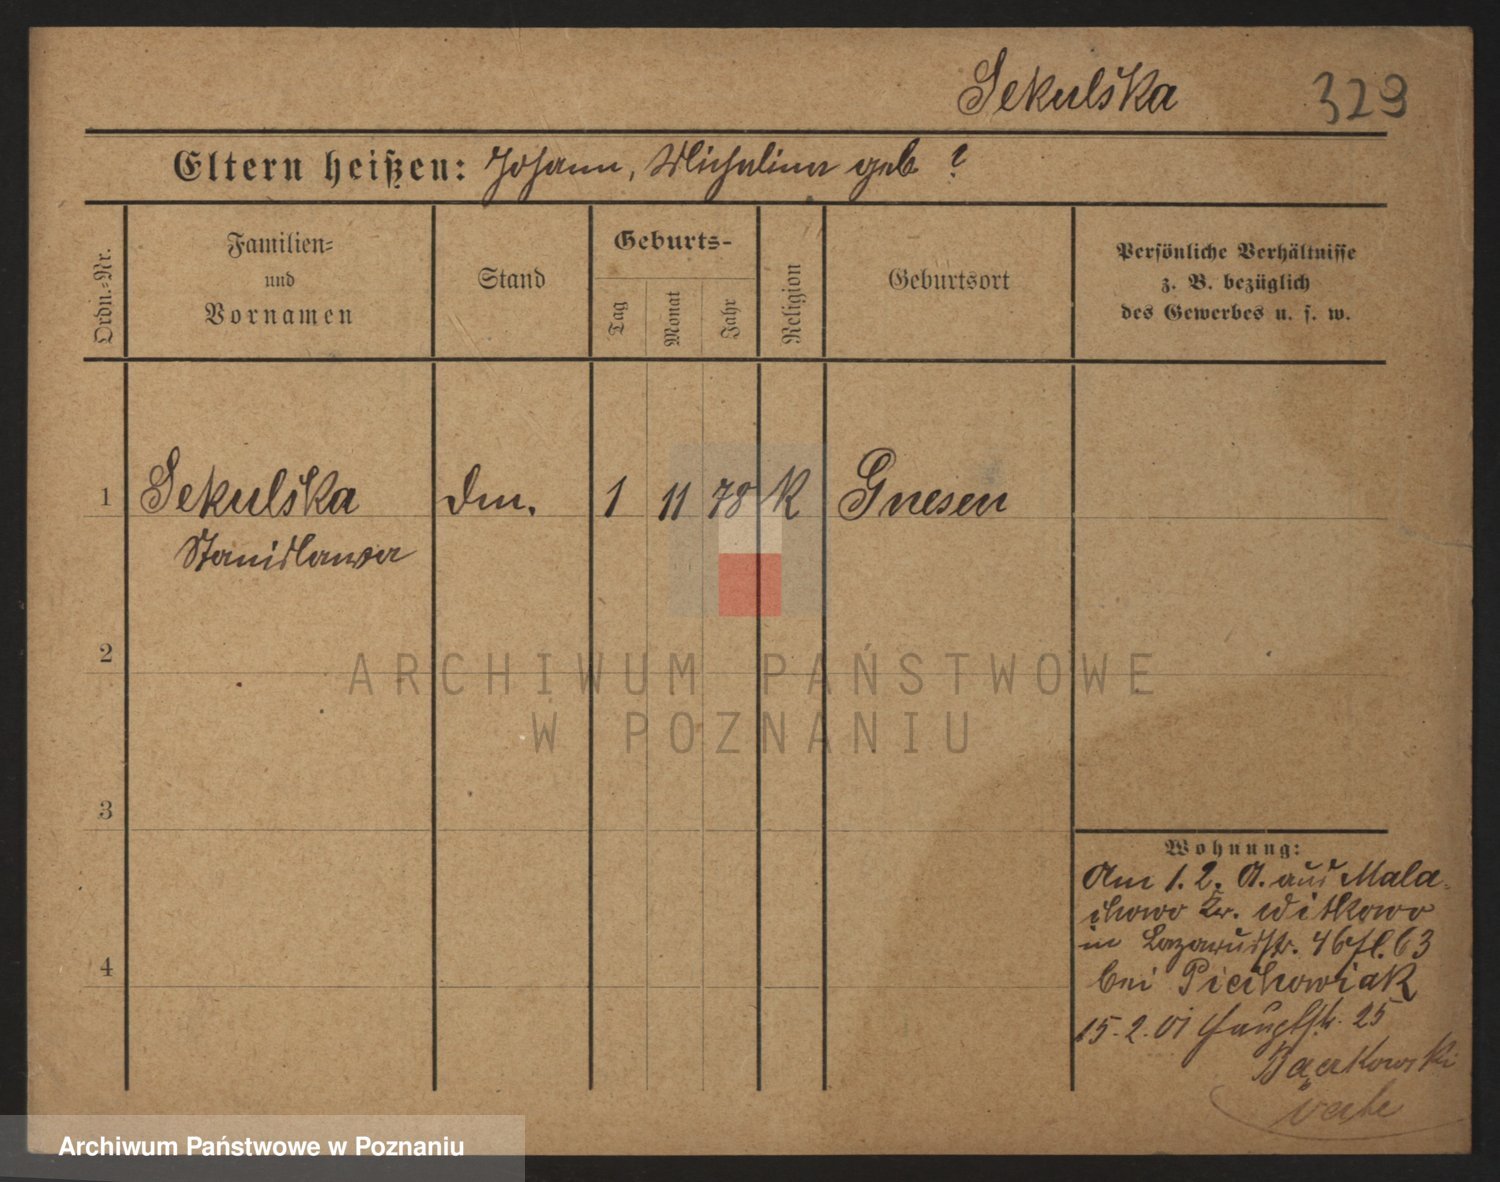 Sekulska 329
Eltern heißen: Johann, Michalina geb ?
Ordn.-Nr.
Familien-
und
Vornamen
Stand
Geburts-
Tag
Monat
Jahr
Religion
Geburtsort
Persönliche Verhältnisse
z. B. bezüglich
des Gewerbes u. s. w.
1 Sekulska Dm. 1 11 78 K Gnesen
Stanislawa
2
3
4
Wohnung:
Am 1. 2. 01. aus Mala-
chowo Kr. Witkowo
in Lazarusstr. 4 63
bei Piechowiak
15. 2. 01 Hauptstr. 25
ARCHIWUM PAŃSTWOWE
W POZNANIU
Archiwum Państwowe w Poznaniu